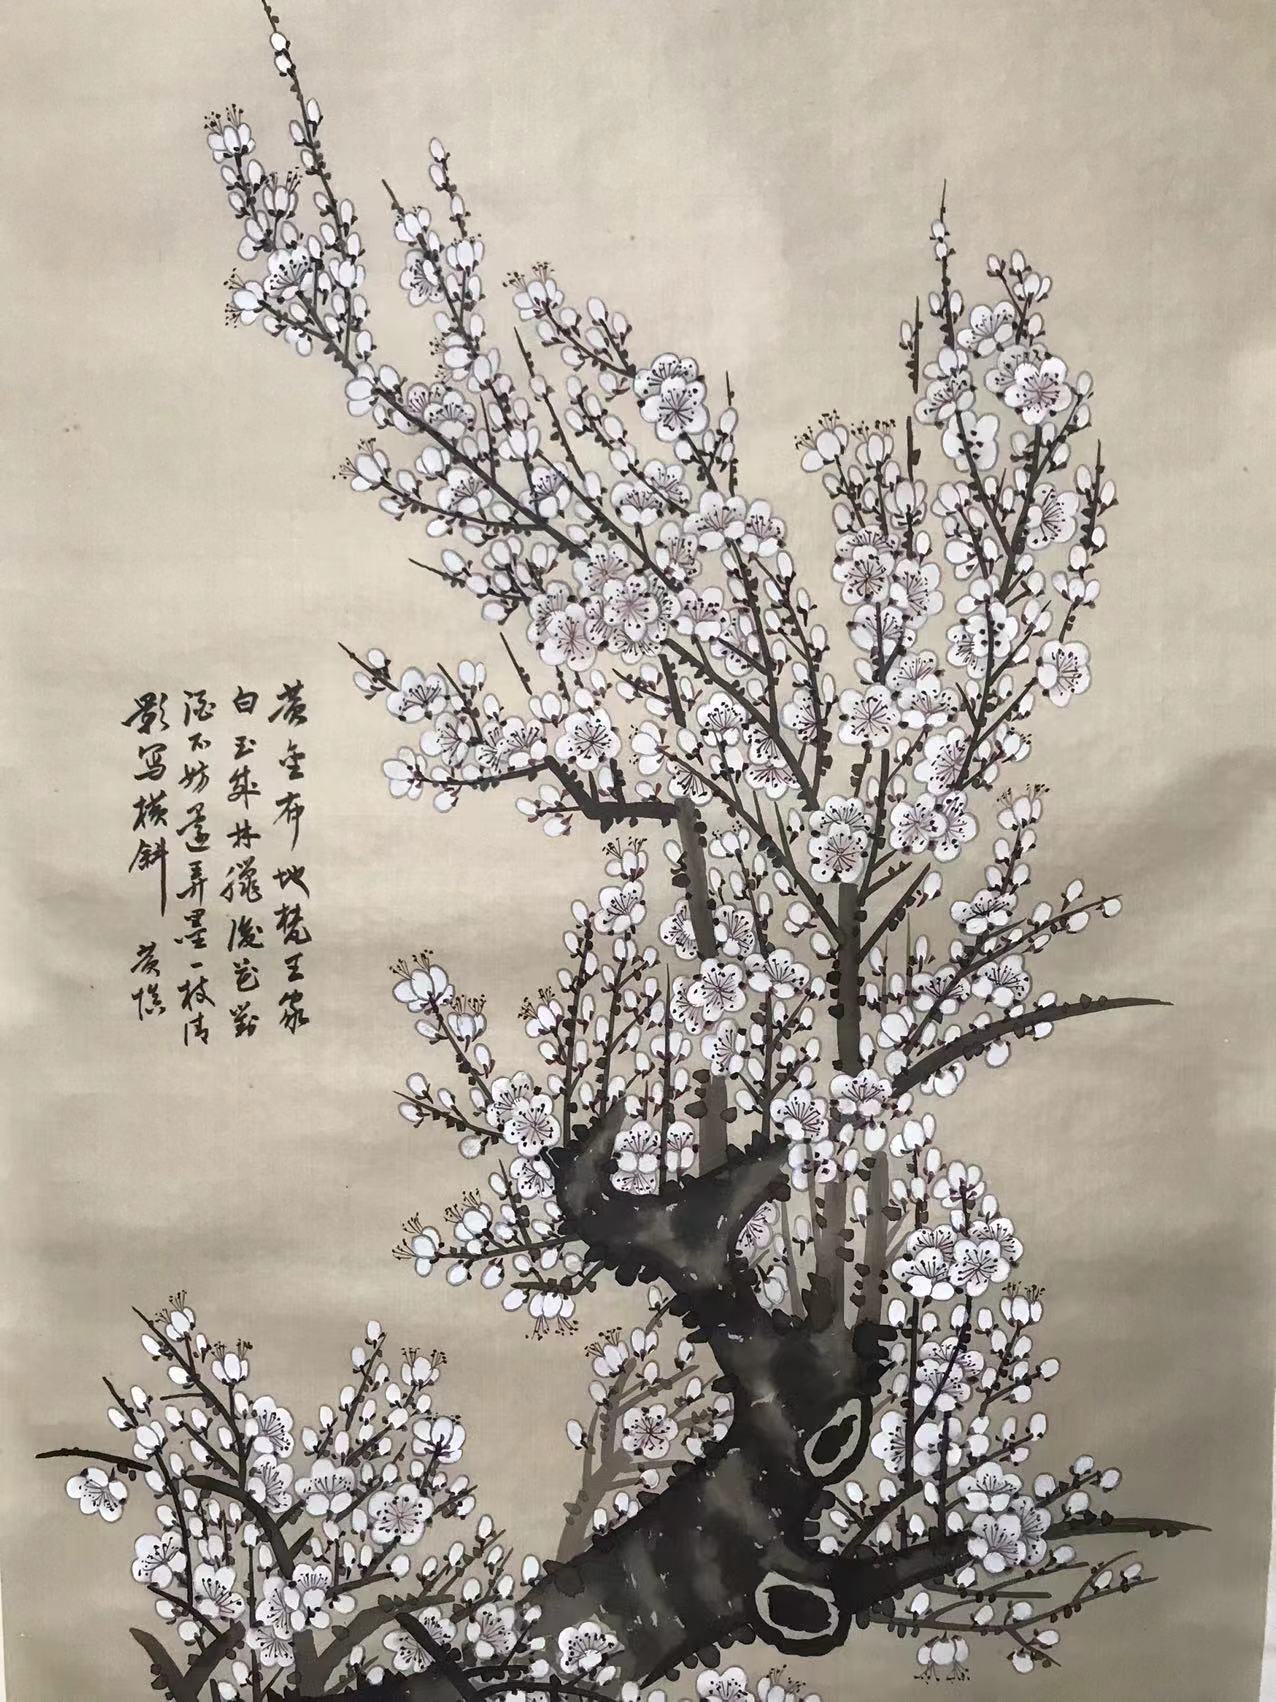 黄金布地梵王家
白玉成林臘後花對
酒不妨還弄墨一枝清
影写橫斜 黄慎